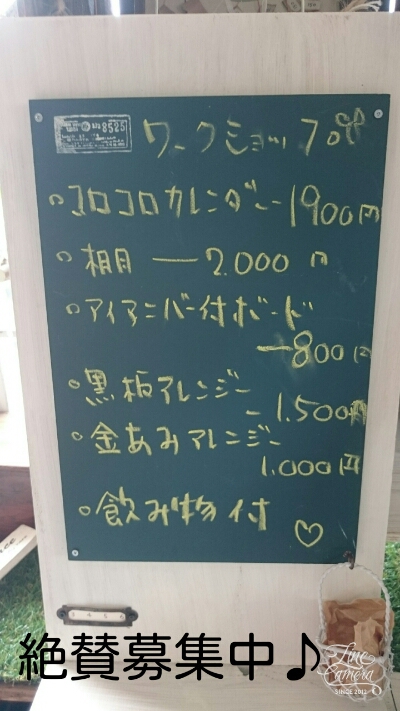 8525
ワークショップ
○コロコロカレンダー 1900円
○棚 ― 2.000円
○アイアンバー付ボード
―800円
○黒板アレンジー
- 1.500円
○金あみアレンジー
1.000円
○飲み物付 ♡
絶賛募集中♪
Line Camera
SINCE 2011